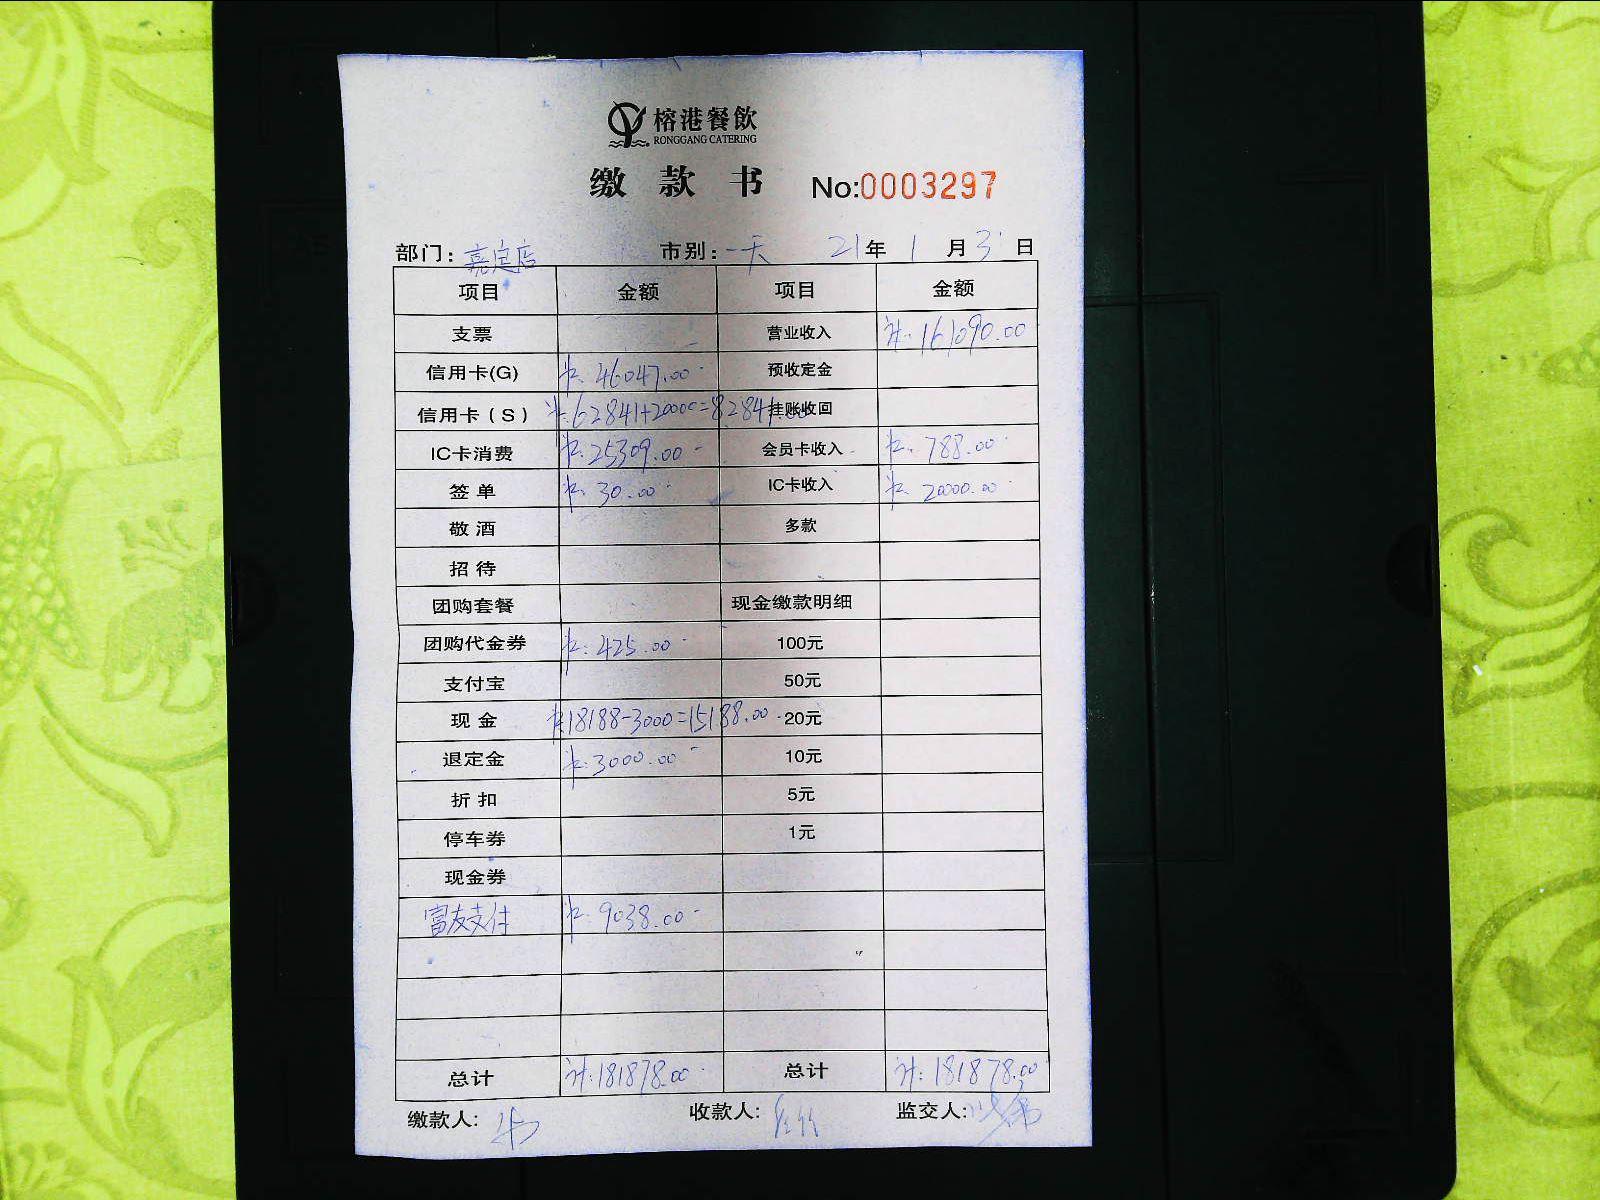 榕港餐飲
RONGGANG CATERING
缴款书 No:0003297
部门：嘉定店 市别：一天 21年 1月 3日
项目 金额 项目 金额
支票 营业收入 计：161090.00
信用卡(G) 卡：46047.00 预收定金
信用卡（S） 卡：62841+20000=82841.00 挂账收回
IC卡消费 卡：25309.00 会员卡收入 卡：788.00
签单 卡：30.00 IC卡收入 卡：20000.00
敬酒 多款
招待
团购套餐 现金缴款明细
团购代金券 卡：425.00 100元
支付宝 50元
现金 卡：18188-3000=15188.00 20元
退定金 卡：3000.00 10元
折扣 5元
停车券 1元
现金券
富友支付 卡：9038.00
总计 计：181878.00 总计 计：181878.00
缴款人： 收款人： 监交人：